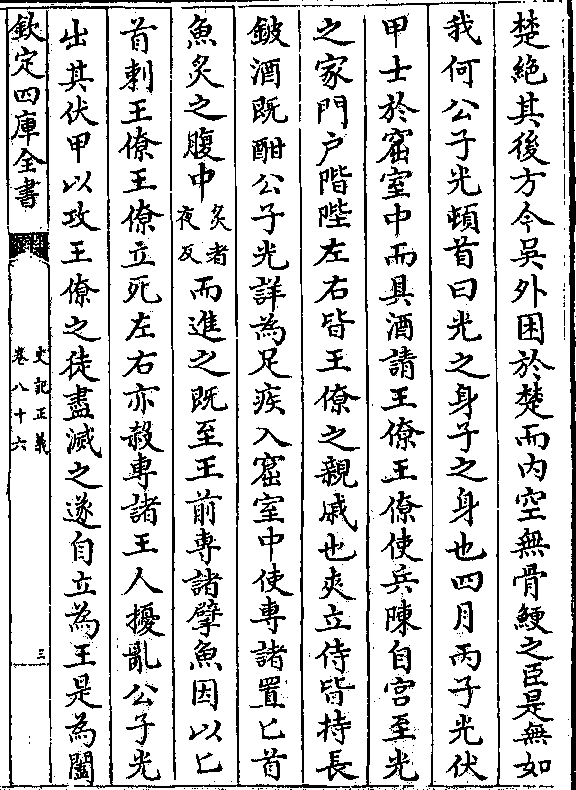 楚絶其後方今吳外困於楚而内空無骨鯁之臣是無如
我何公子光頓首曰光之身子之身也四月丙子光伏
甲士於窟室中而具酒請王僚王僚使兵陳自宮至光
之家門户階陛左右皆王僚之親戚也夾立侍皆持長
鈹酒既酣公子光詳為足疾入窟室中使專諸置匕首
魚炙之腹中炙者夜反而進之既至王前專諸擘魚因以匕
首刺王僚王僚立死左右亦殺專諸王人擾亂公子光
出其伏甲以攻王僚之徒盡滅之遂自立為王是為闔
欽定四庫全書
史記正義
卷八十六
三